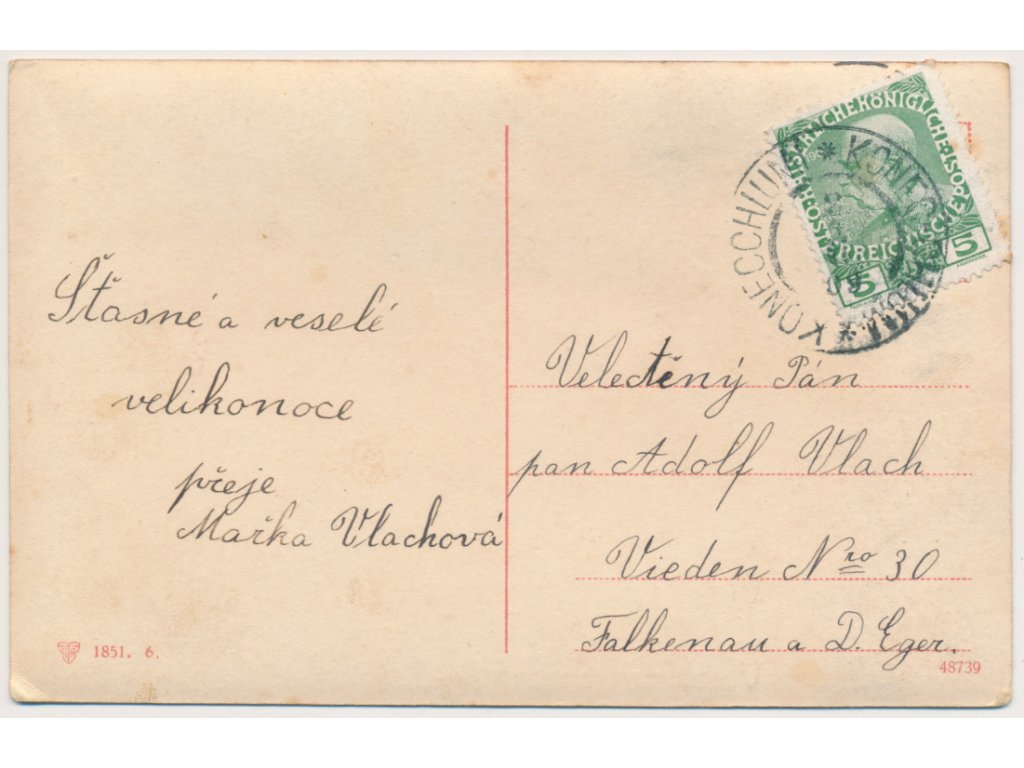 Šťasné a veselé
velikonoce
přeje
Mařka Vlachová
1851. 6.
KAISERLICHE KÖNIGLICHE ÖSTERREICHISCHE POST
5 5
* KONECCHLUMÍ * KONECCHLUM
Velectěný Pán
pan Adolf Vlach
Vieden Nro 30
Falkenau a D. Eger.
48739